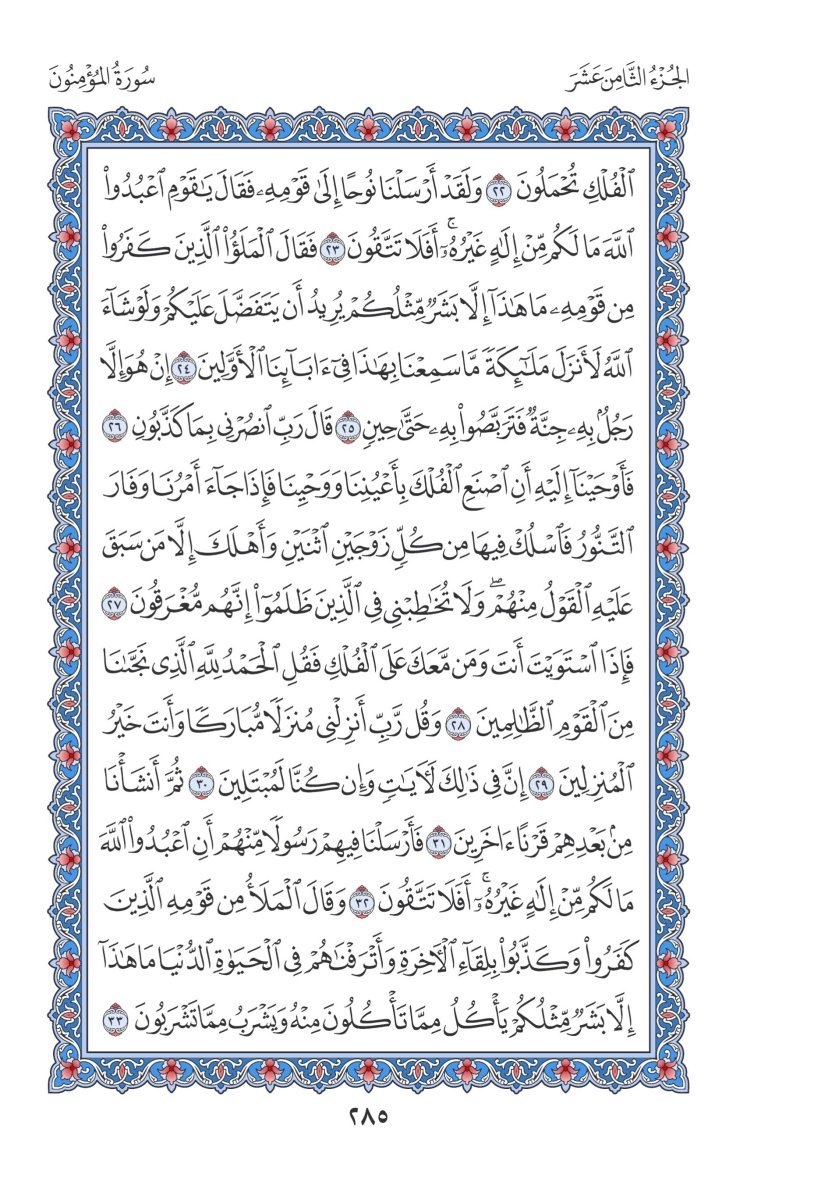 الجُزْءُ الثَّامِنَ عَشَرَ
سُورَةُ المُؤْمِنُونَ
ٱلْفُلْكِ تُحْمَلُونَ ٢٢ وَلَقَدْ أَرْسَلْنَا نُوحًا إِلَىٰ قَوْمِهِۦ فَقَالَ يَٰقَوْمِ ٱعْبُدُوا۟
ٱللَّهَ مَا لَكُم مِّنْ إِلَٰهٍ غَيْرُهُۥٓ ۚ أَفَلَا تَتَّقُونَ ٢٣ فَقَالَ ٱلْمَلَؤُا۟ ٱلَّذِينَ كَفَرُوا۟
مِن قَوْمِهِۦ مَا هَٰذَآ إِلَّا بَشَرٌ مِّثْلُكُمْ يُرِيدُ أَن يَتَفَضَّلَ عَلَيْكُمْ وَلَوْ شَآءَ
ٱللَّهُ لَأَنزَلَ مَلَٰٓئِكَةً مَّا سَمِعْنَا بِهَٰذَا فِىٓ ءَابَآئِنَا ٱلْأَوَّلِينَ ٢٤ إِنْ هُوَ إِلَّا
رَجُلٌۢ بِهِۦ جِنَّةٌ فَتَرَبَّصُوا۟ بِهِۦ حَتَّىٰ حِينٍ ٢٥ قَالَ رَبِّ ٱنصُرْنِى بِمَا كَذَّبُونِ ٢٦
فَأَوْحَيْنَآ إِلَيْهِ أَنِ ٱصْنَعِ ٱلْفُلْكَ بِأَعْيُنِنَا وَوَحْيِنَا فَإِذَا جَآءَ أَمْرُنَا وَفَارَ
ٱلتَّنُّورُ فَٱسْلُكْ فِيهَا مِن كُلٍّ زَوْجَيْنِ ٱثْنَيْنِ وَأَهْلَكَ إِلَّا مَن سَبَقَ
عَلَيْهِ ٱلْقَوْلُ مِنْهُمْ ۖ وَلَا تُخَٰطِبْنِى فِى ٱلَّذِينَ ظَلَمُوٓا۟ إِنَّهُم مُّغْرَقُونَ ٢٧
فَإِذَا ٱسْتَوَيْتَ أَنتَ وَمَن مَّعَكَ عَلَى ٱلْفُلْكِ فَقُلِ ٱلْحَمْدُ لِلَّهِ ٱلَّذِى نَجَّىٰنَا
مِنَ ٱلْقَوْمِ ٱلظَّٰلِمِينَ ٢٨ وَقُل رَّبِّ أَنزِلْنِى مُنزَلًا مُّبَارَكًا وَأَنتَ خَيْرُ
ٱلْمُنزِلِينَ ٢٩ إِنَّ فِى ذَٰلِكَ لَءَايَٰتٍ وَإِن كُنَّا لَمُبْتَلِينَ ٣٠ ثُمَّ أَنشَأْنَا
مِنۢ بَعْدِهِمْ قَرْنًا ءَاخَرِينَ ٣١ فَأَرْسَلْنَا فِيهِمْ رَسُولًا مِّنْهُمْ أَنِ ٱعْبُدُوا۟ ٱللَّهَ
مَا لَكُم مِّنْ إِلَٰهٍ غَيْرُهُۥٓ ۚ أَفَلَا تَتَّقُونَ ٣٢ وَقَالَ ٱلْمَلَأُ مِن قَوْمِهِ ٱلَّذِينَ
كَفَرُوا۟ وَكَذَّبُوا۟ بِلِقَآءِ ٱلْءَاخِرَةِ وَأَتْرَفْنَٰهُمْ فِى ٱلْحَيَوٰةِ ٱلدُّنْيَا مَا هَٰذَآ
إِلَّا بَشَرٌ مِّثْلُكُمْ يَأْكُلُ مِمَّا تَأْكُلُونَ مِنْهُ وَيَشْرَبُ مِمَّا تَشْرَبُونَ ٣٣
٢٨٥